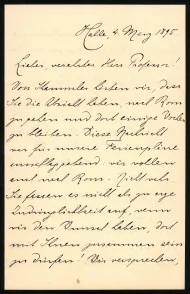 Halle, 4. März 1895
Lieber, verehrter Herr Professor!
Von Stammler hörten wir, dass
Sie die Absicht haben, nach Rom
zu gehen und dort einige Wochen
zu bleiben. Diese Nachricht
war für unsere Ferienpläne
ausschlaggebend: wir wollen
auch nach Rom. Nicht wahr
Sie fassen es nicht als zu arge
Zudringlichkeit auf, wenn
wir den Wunsch haben, dort
mit Ihnen zusammen sein
zu dürfen! Wir versprechen,